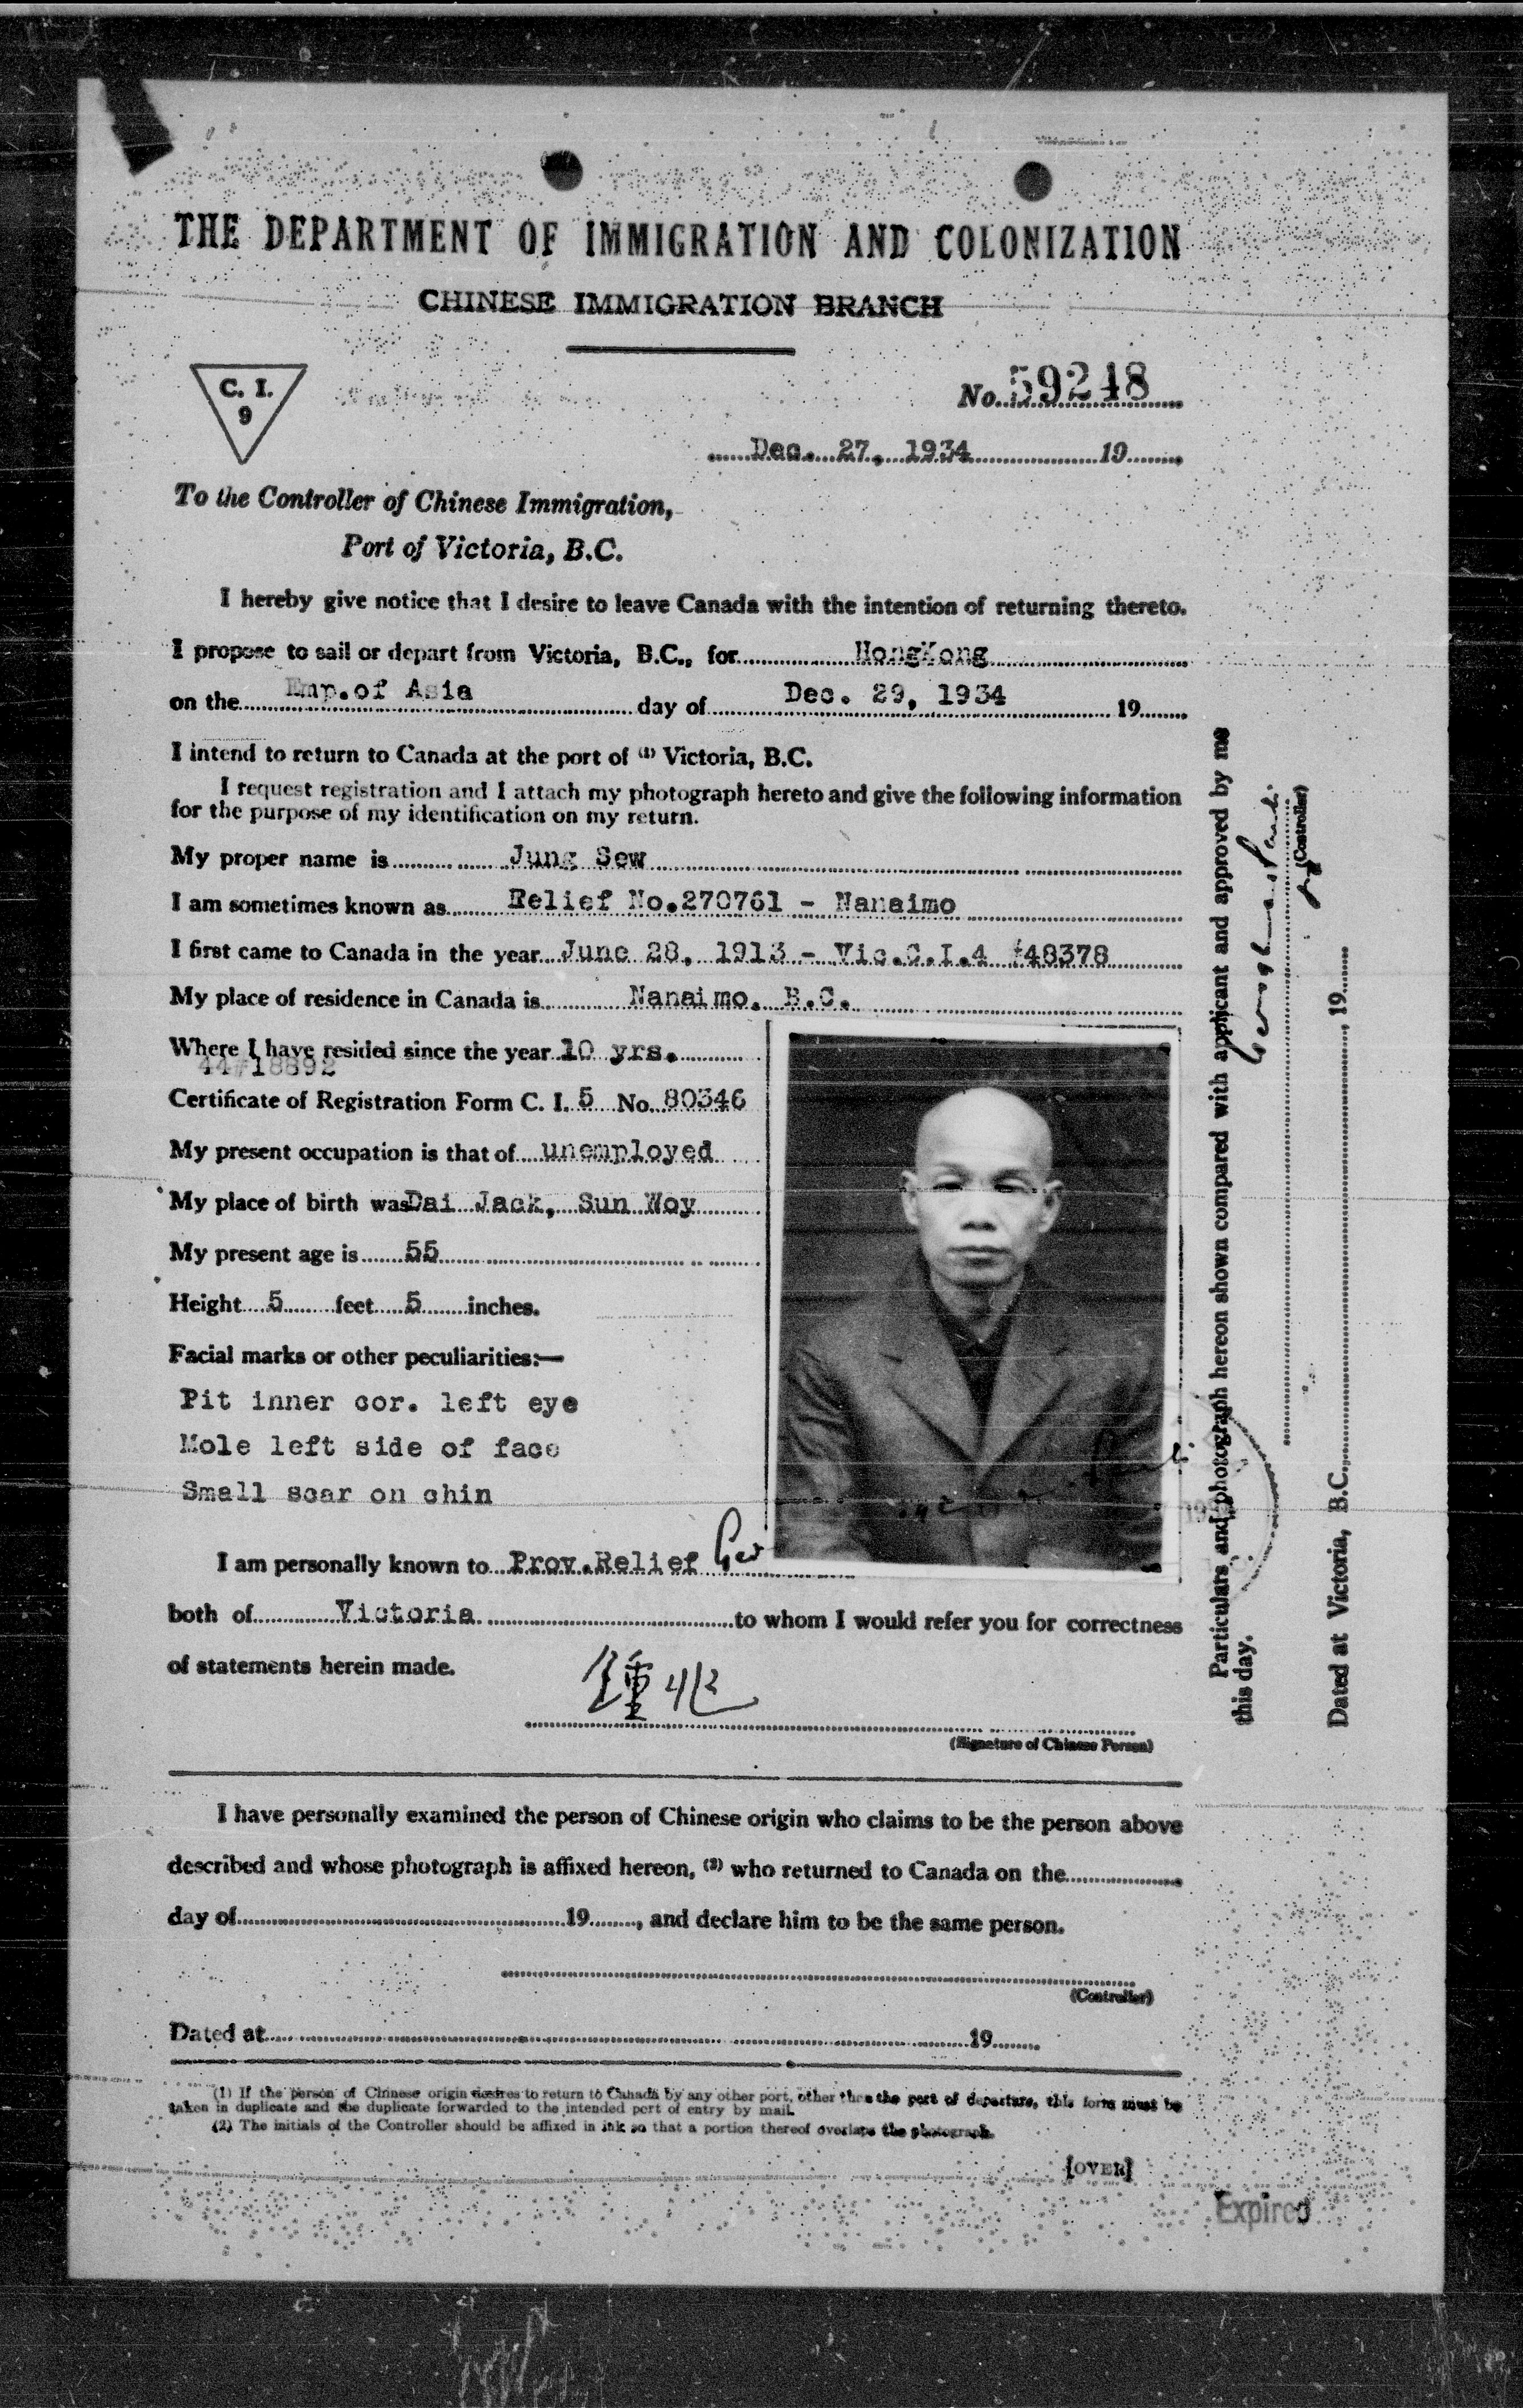 THE DEPARTMENT OF IMMIGRATION AND COLONIZATION
CHINESE IMMIGRATION BRANCH
C. I.
9
No. 59248
Dec. 27, 1934 19
To the Controller of Chinese Immigration,
Port of Victoria, B.C.
I hereby give notice that I desire to leave Canada with the intention of returning thereto.
I propose to sail or depart from Victoria, B.C., for HongKong
on the Emp.of Asia day of Dec. 29, 1934 19
I intend to return to Canada at the port of (1) Victoria, B.C.
I request registration and I attach my photograph hereto and give the following information
for the purpose of my identification on my return.
My proper name is Jung Sew
I am sometimes known as Relief No.270761 - Nanaimo
I first came to Canada in the year June 28, 1913 - Vic.C.I.4 #48378
My place of residence in Canada is Nanaimo, B.C.
Where I have resided since the year 10 yrs.
44#18892
Certificate of Registration Form C. I. 5 No. 80346
My present occupation is that of unemployed
My place of birth was Dai Jack, Sun Woy
My present age is 55
Height 5 feet 5 inches.
Facial marks or other peculiarities:—
Pit inner cor. left eye
Mole left side of face
Small scar on chin
I am personally known to Prov.Relief
both of Victoria to whom I would refer you for correctness
of statements herein made.
鍾兆
(Signature of Chinese Person)
I have personally examined the person of Chinese origin who claims to be the person above
described and whose photograph is affixed hereon, (2) who returned to Canada on the
day of 19 , and declare him to be the same person.
(Controller)
Dated at 19
(1) If the person of Chinese origin desires to return to Canada by any other port, other than the port of departure, this form must be
taken in duplicate and the duplicate forwarded to the intended port of entry by mail.
(2) The initials of the Controller should be affixed in ink so that a portion thereof overlaps the photograph.
[OVER]
Expired
Particulars and photograph hereon shown compared with applicant and approved by me
this day.
(Controller)
Dated at Victoria, B.C., 19